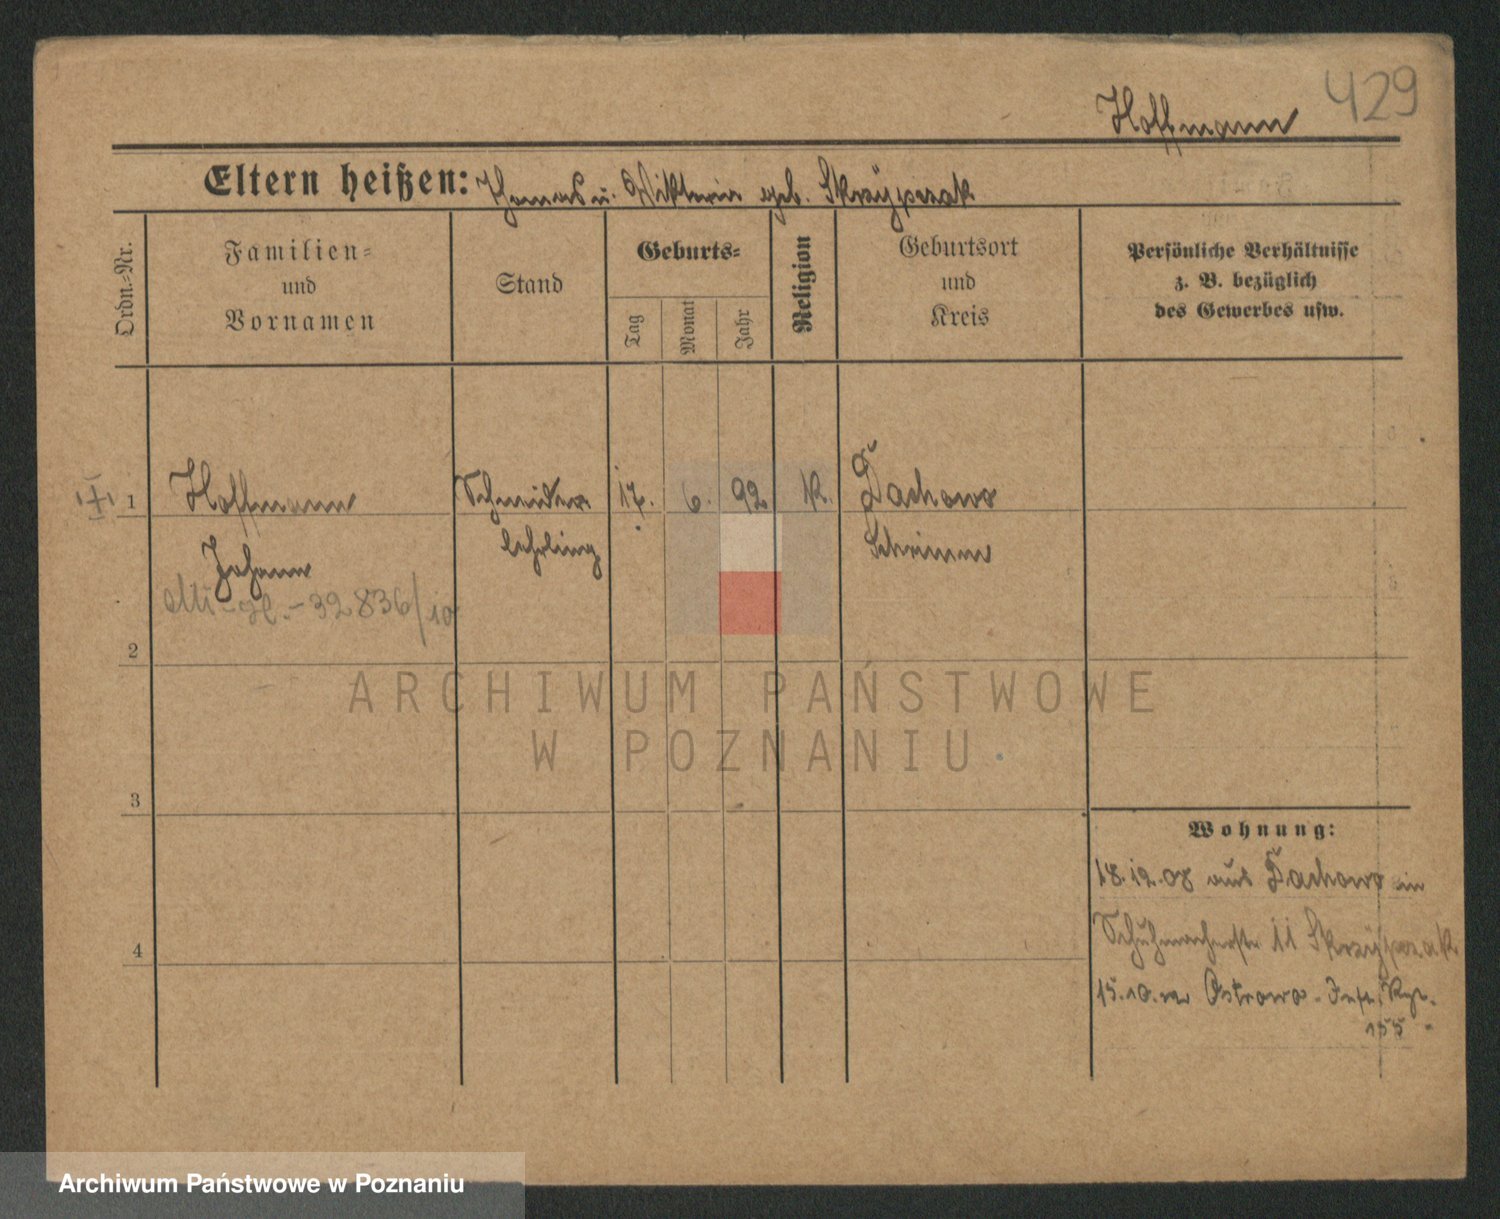 429
Hoffmann
Eltern heißen: Thomas u. Wiktoria geb. Skrzÿpczak
Ordn.-Nr.
Familien-
und
Vornamen
Stand
Geburts-
Tag
Monat
Jahr
Religion
Geburtsort
und
Kreis
Persönliche Verhältnisse
z. B. bezüglich
des Gewerbes usw.
1 Hoffmann Schneider 17. 6. 92 k. Dachowo
Johann lehrling Schrimm
32836/10
2
ARCHIWUM PAŃSTWOWE
W POZNANIU
3
4
Wohnung:
18.12.08 aus Dachowo in
Schuhmacherstr 11 Skrzÿpczak
15.10. Ostrowo - Inf. Rgt.
155
Archiwum Państwowe w Poznaniu